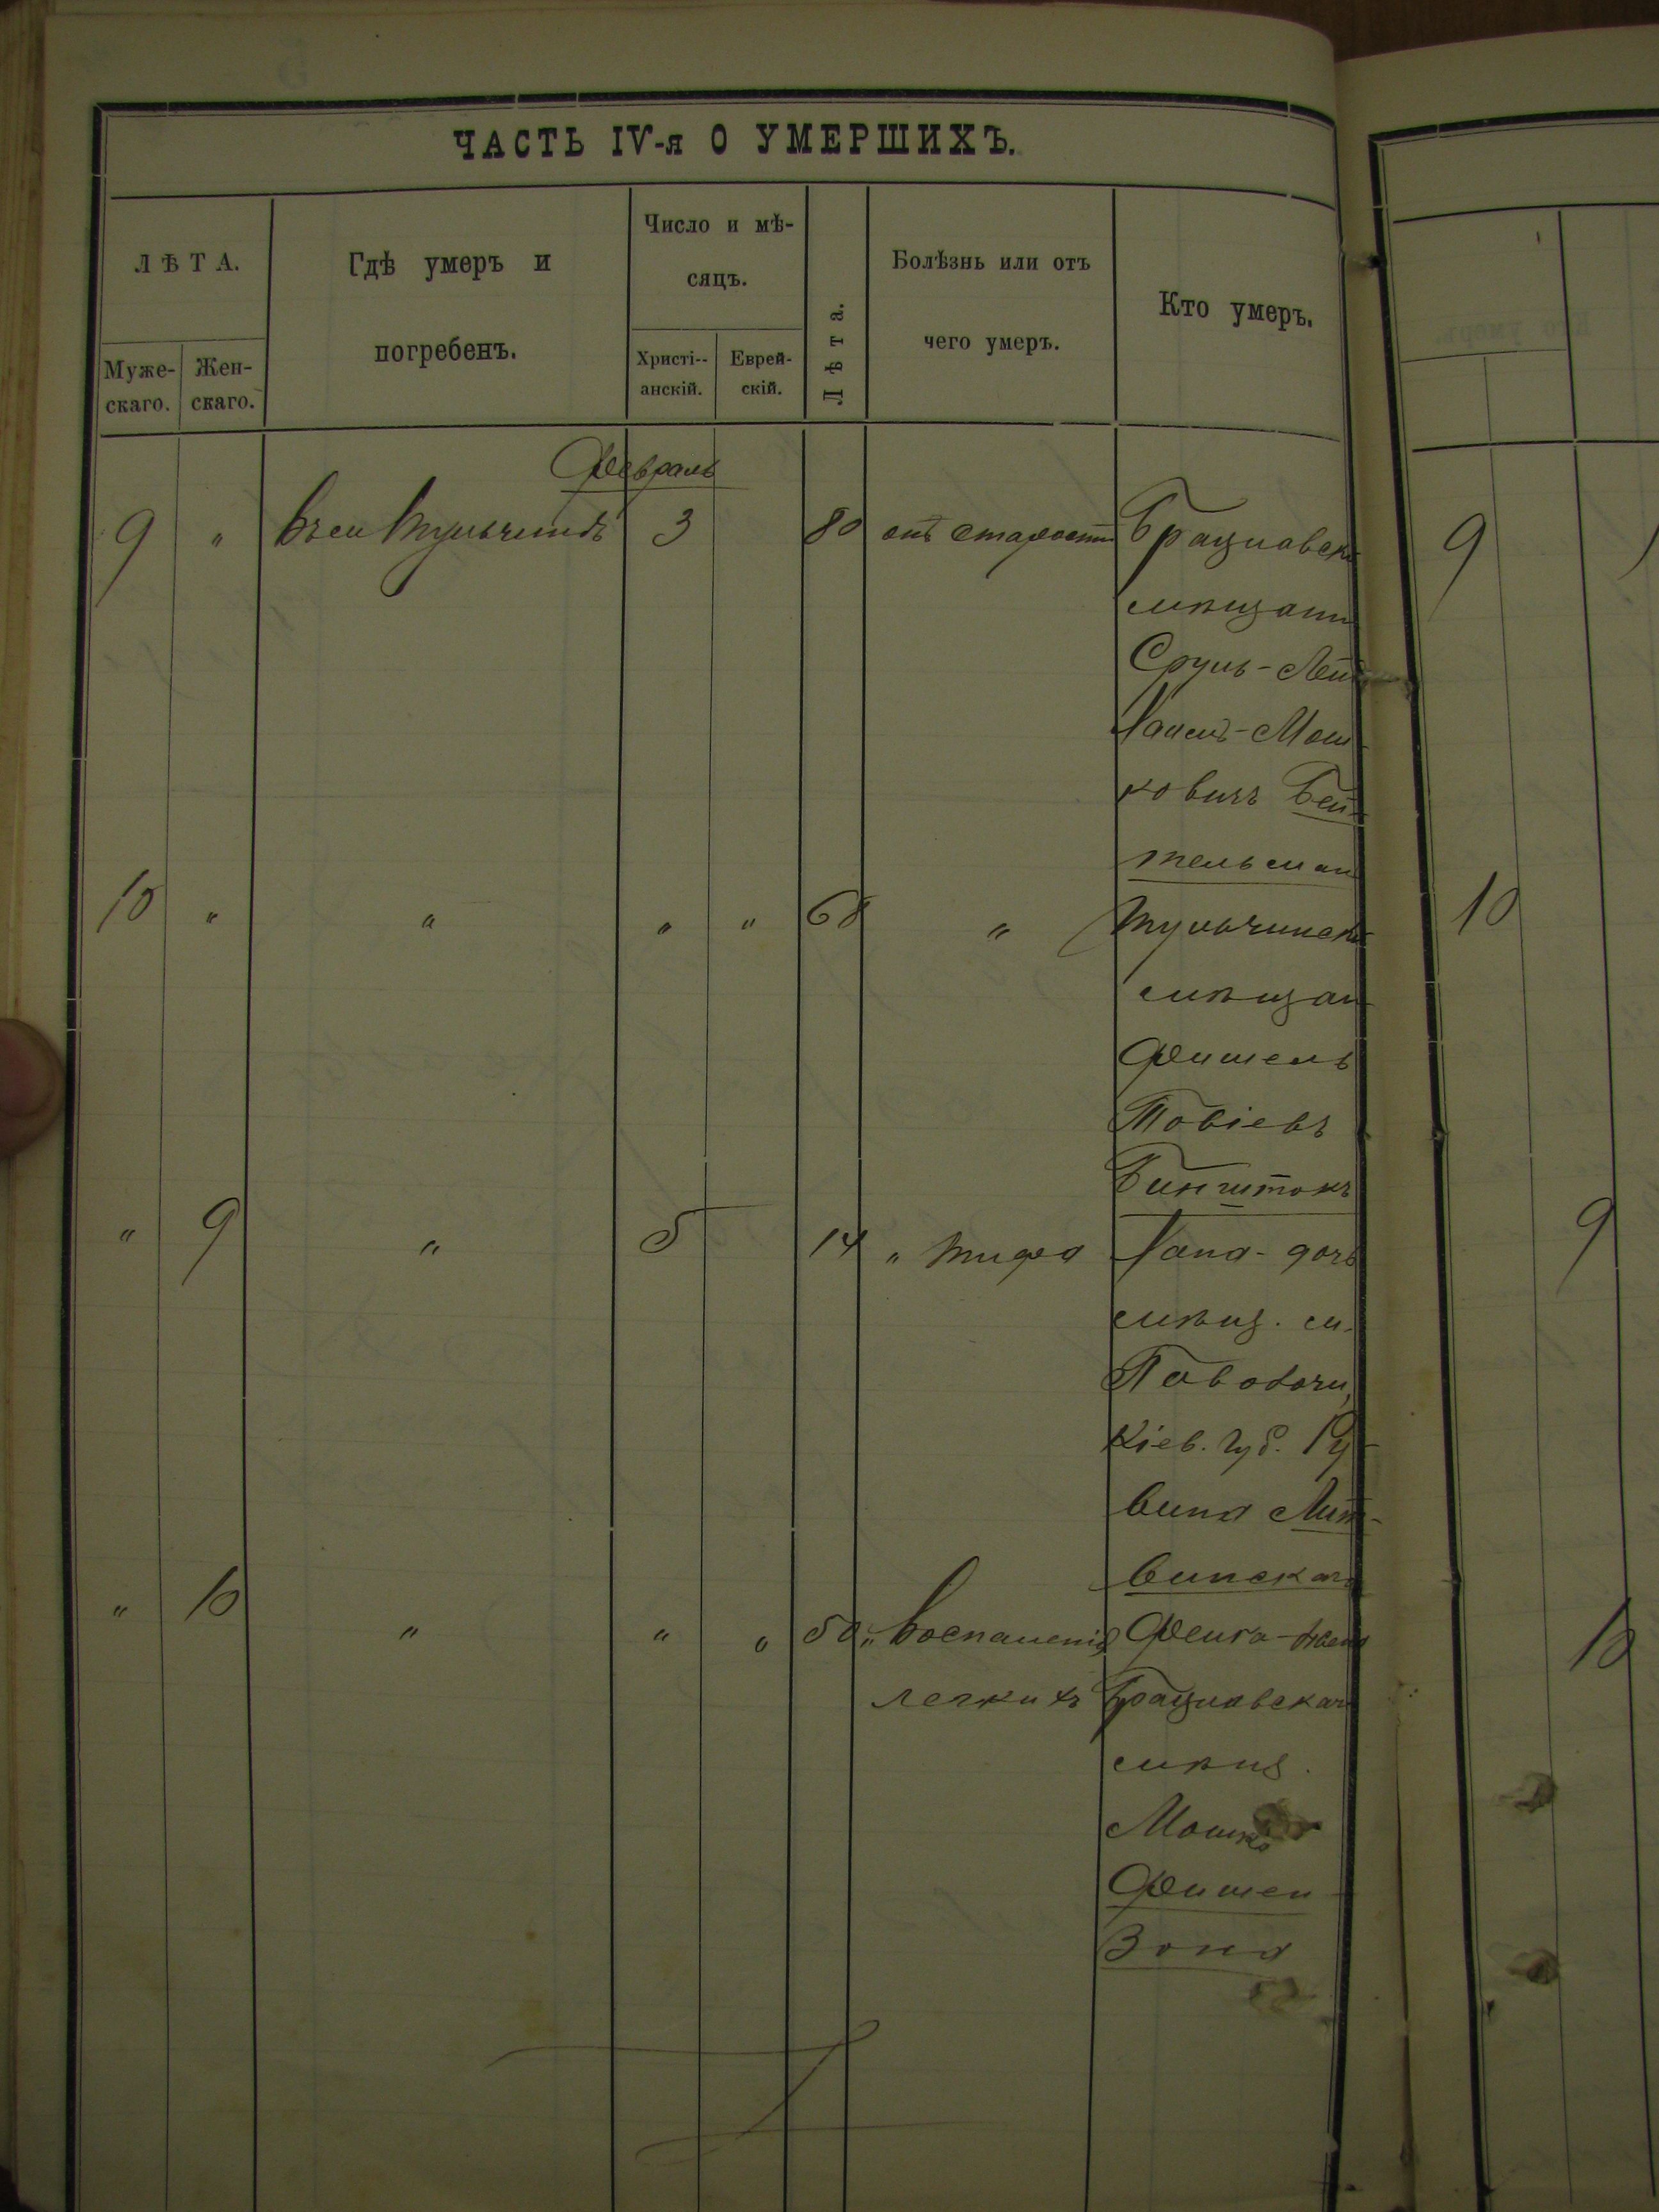 ЧАСТЬ IV-я О УМЕРШИХЪ.
ЛѢТА.
Муже-
скаго.
Жен-
скаго.
Гдѣ умеръ и
погребенъ.
Число и мѣ-
сяцъ.
Христі-
анскій.
Еврей-
скій.
Лѣта.
Болѣзнь или отъ
чего умеръ.
Кто умеръ.
Февраль
9 " Въ м Тульчинѣ 3 80 отъ старости Брацлавск
мѣщани
Сруль-Лей
Хаимъ-Мош-
ковичъ Бей-
тельман
10 " " " " 68 " Тульчинск
мѣщан
Фишель
Товіевъ
Бинштокъ
" 9 " 5 14 " тифа Хана-дочь
мѣщ. м.
Паволочи,
Кіев. губ. Ру-
вина Лит-
винскаго
" 10 " " " 50 " воспаленія Фейга-жена
легкихъ Брацлавскаго
мѣщ.
Мошко
Фишен-
зона
9
10
9
10